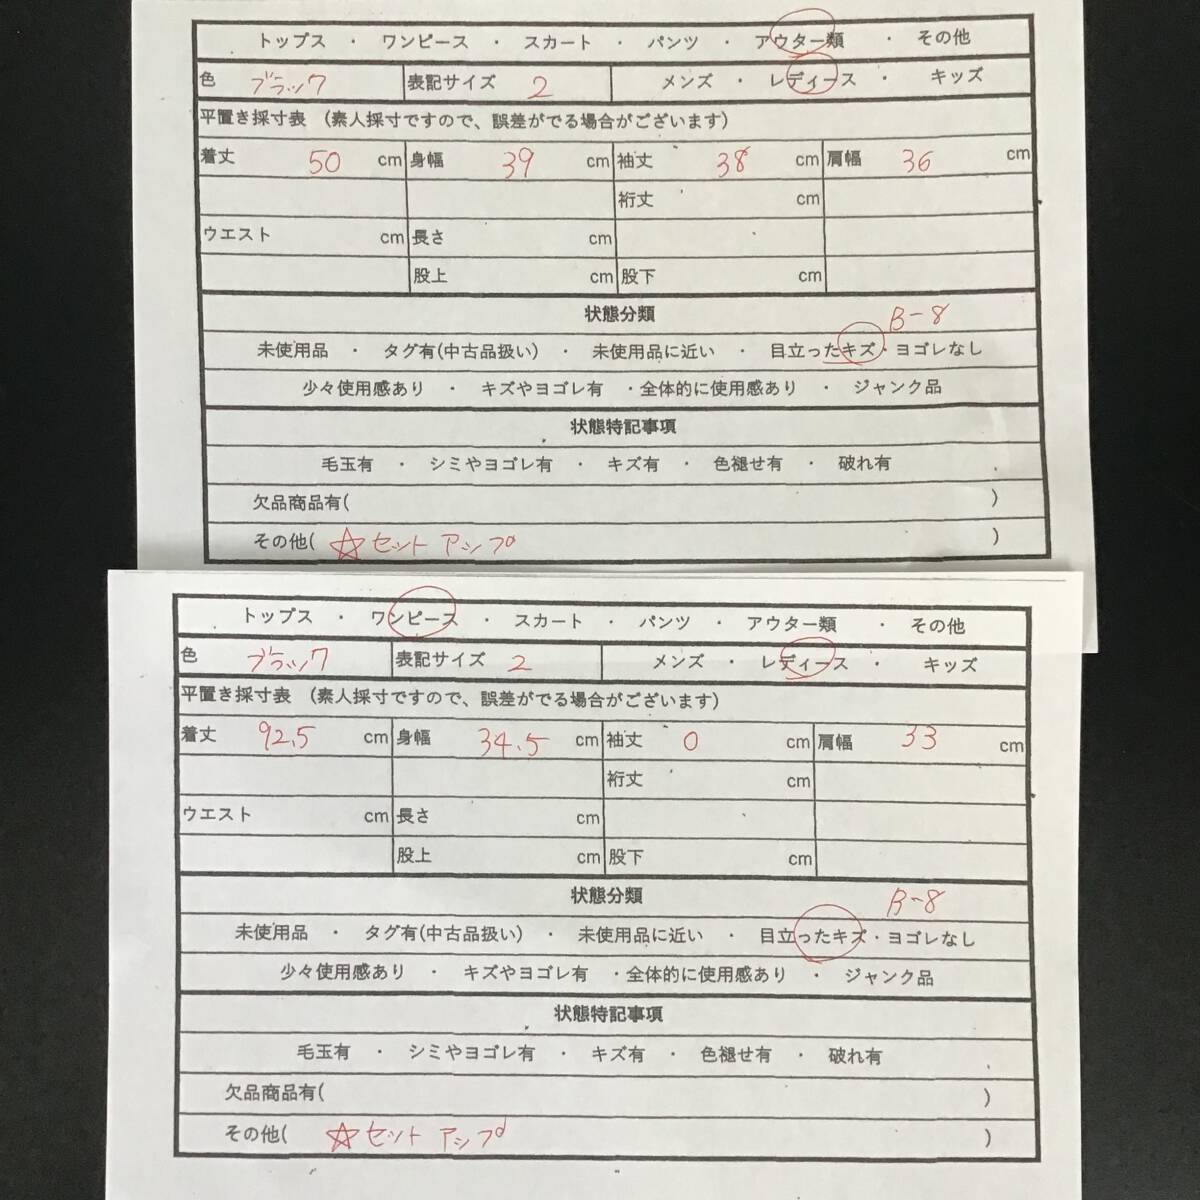 トップス ・ ワンピース ・ スカート ・ パンツ ・ アウター類 ・ その他
色 ブラック 表記サイズ 2 メンズ ・ レディース ・ キッズ
平置き採寸表 (素人採寸ですので、誤差がでる場合がございます)
着丈 50 cm 身幅 39 cm 袖丈 38 cm 肩幅 36 cm
裄丈 cm
ウエスト cm 長さ cm
股上 cm 股下 cm
状態分類
B-8
未使用品 ・ タグ有(中古品扱い) ・ 未使用品に近い ・ 目立ったキズ・ヨゴレなし
少々使用感あり ・ キズやヨゴレ有 ・全体的に使用感あり ・ ジャンク品
状態特記事項
毛玉有 ・ シミやヨゴレ有 ・ キズ有 ・ 色褪せ有 ・ 破れ有
欠品商品有( )
その他( ☆セットアップ )
トップス ・ ワンピース ・ スカート ・ パンツ ・ アウター類 ・ その他
色 ブラック 表記サイズ 2 メンズ ・ レディース ・ キッズ
平置き採寸表 (素人採寸ですので、誤差がでる場合がございます)
着丈 92.5 cm 身幅 34.5 cm 袖丈 0 cm 肩幅 33 cm
裄丈 cm
ウエスト cm 長さ cm
股上 cm 股下 cm
状態分類
B-8
未使用品 ・ タグ有(中古品扱い) ・ 未使用品に近い ・ 目立ったキズ・ヨゴレなし
少々使用感あり ・ キズやヨゴレ有 ・全体的に使用感あり ・ ジャンク品
状態特記事項
毛玉有 ・ シミやヨゴレ有 ・ キズ有 ・ 色褪せ有 ・ 破れ有
欠品商品有( )
その他( ☆セットアップ )